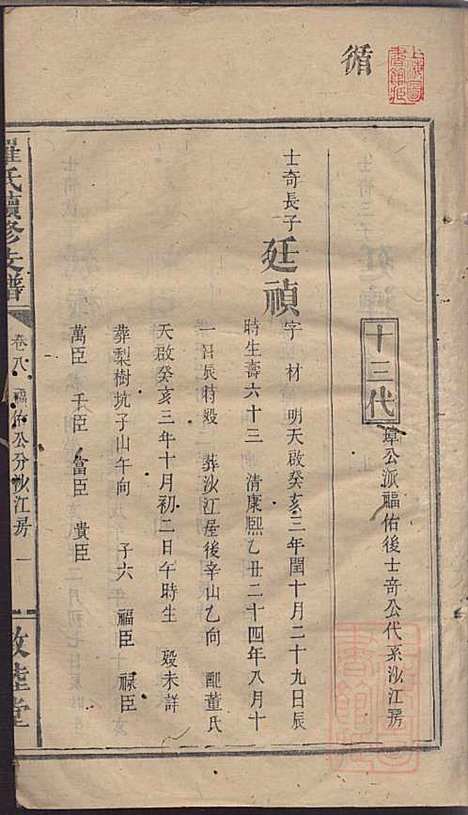 循
十三代
璋公派福佑後士奇公代系沙江房
士奇長子廷禎字 材 明天啟癸亥三年閏十月二十九日辰
時生壽六十三 清康熙乙丑二十四年八月十
一日辰時歿 葬沙江屋後辛山乙向 配董氏
天啟癸亥三年十月初二日午時生 歿未詳
葬梨樹坑子山午向 子六 福臣 祿臣
萬臣 千臣 富臣 貴臣
羅氏續修支譜
卷八 福佑公分沙江房 一
敦睦堂